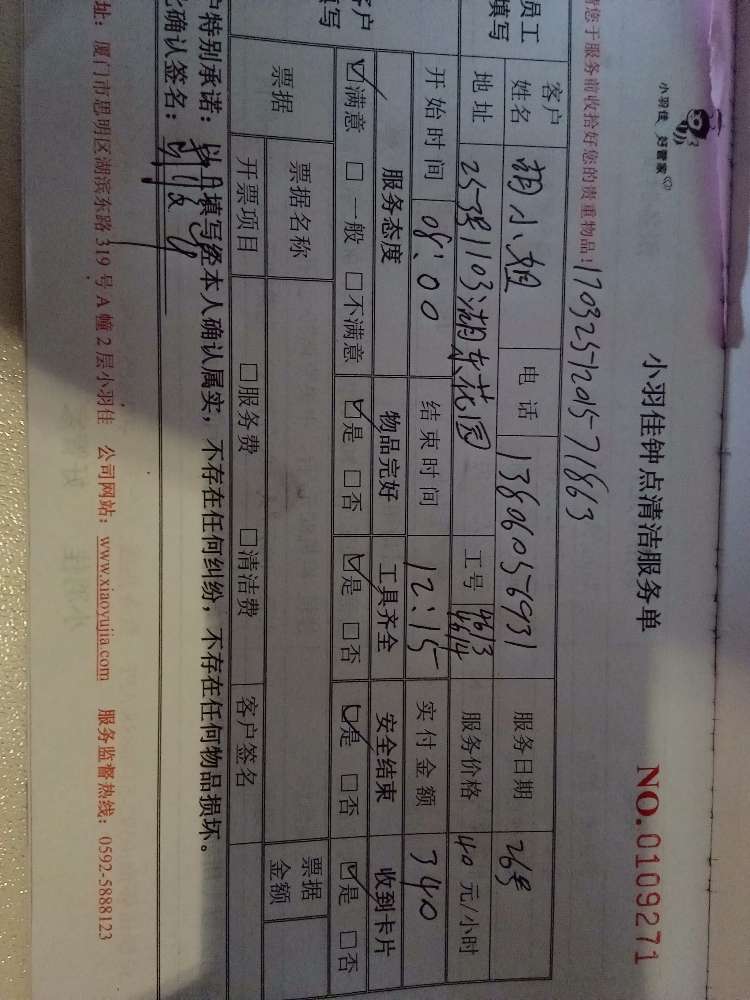 小羽佳 好管家
小羽佳钟点清洁服务单
NO.0109271
请您于服务前收拾好您的贵重物品!1703251201571863
员工
填写
客户
姓名
胡小姐
电话
13806056931
服务日期
26号
地址
25号1103湖东花园
工号
4613
4614
服务价格
40 元/小时
开始时间
08:00
结束时间
12:15
实付金额
340
客户
填写
服务态度
物品完好
工具齐全
安全结束
收到卡片
☑满意 □一般 □不满意
☑是 □否
☑是 □否
☑是 □否
☑是 □否
票据
票据名称
票据
金额
开票项目
□服务费 □清洁费
客户签名
户特别承诺:以上填写经本人确认属实,不存在任何纠纷,不存在任何物品损坏。
此确认签名:
址:厦门市思明区湖滨东路319号A幢2层小羽佳 公司网站:www.xiaoyujia.com 服务监督热线:0592-5888123